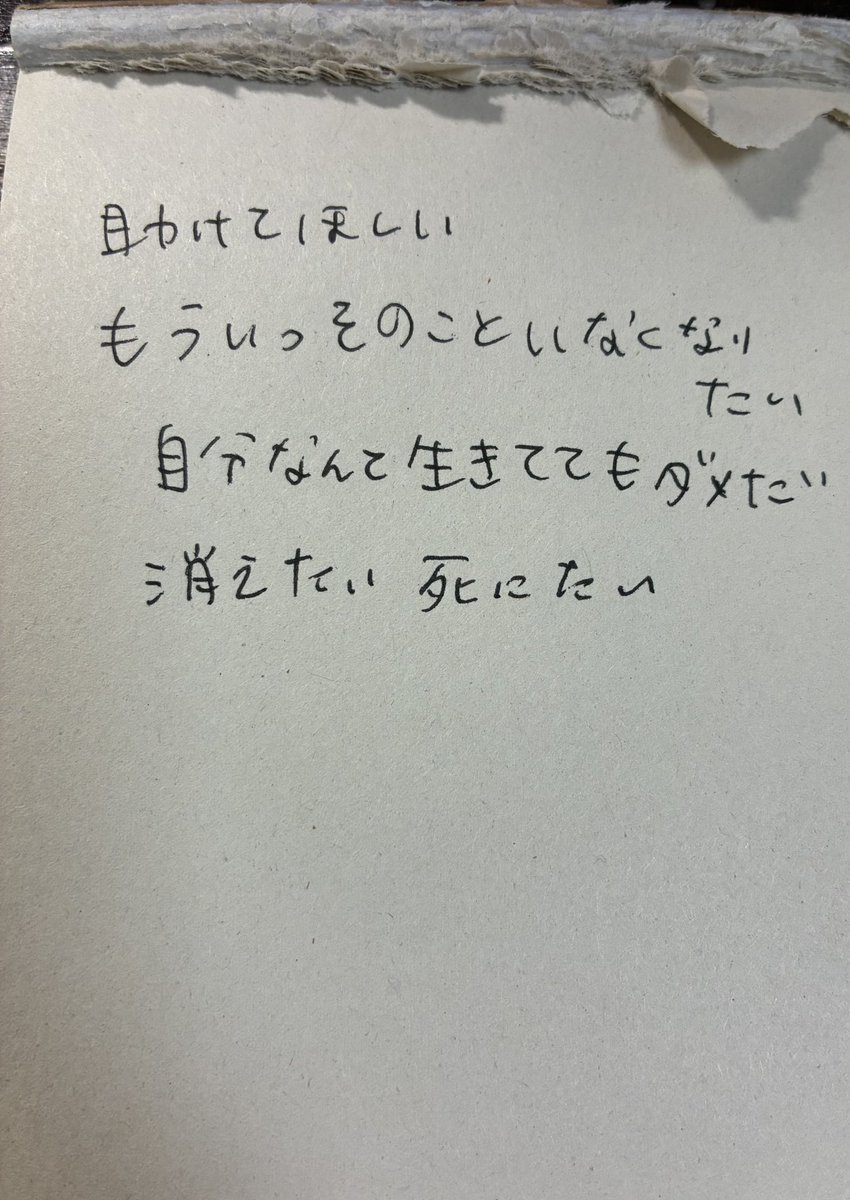 助けてほしい
もういっそのこといなくなり
たい
自分なんて生きててもダメだ
消えたい 死にたい